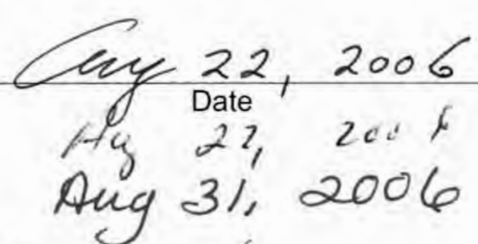 Aug 22, 2006
Date
Aug 22, 2006
Aug 31, 2006